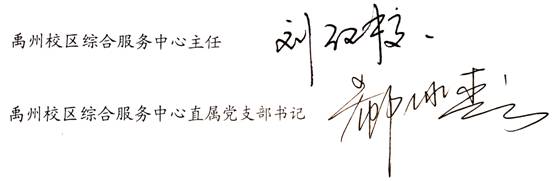 禹州校区综合服务中心主任 刘
禹州校区综合服务中心直属党支部书记